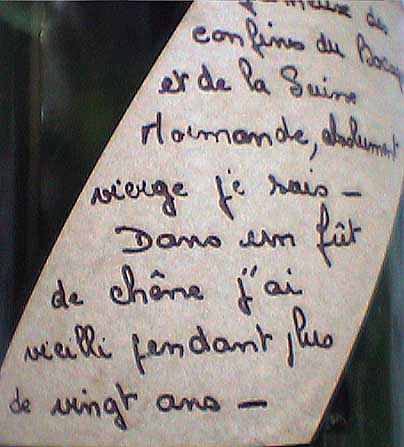 des
confins du Bocag
et de la Suisse
Normande, absolument
vierge je suis —
Dans un fût
de chêne j'ai
vieilli pendant plus
de vingt ans —